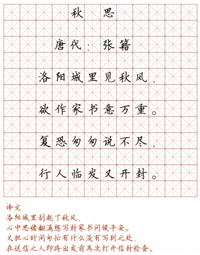 秋 思
唐代：张籍
洛阳城里见秋风，
欲作家书意万重。
复恐匆匆说不尽，
行人临发又开封。
译文
洛阳城里刮起了秋风，
心中思绪翻涌想写封家书问候平安。
又担心时间匆忙有什么没有写到之处，
在送信之人即将出发前再次打开信封检查。